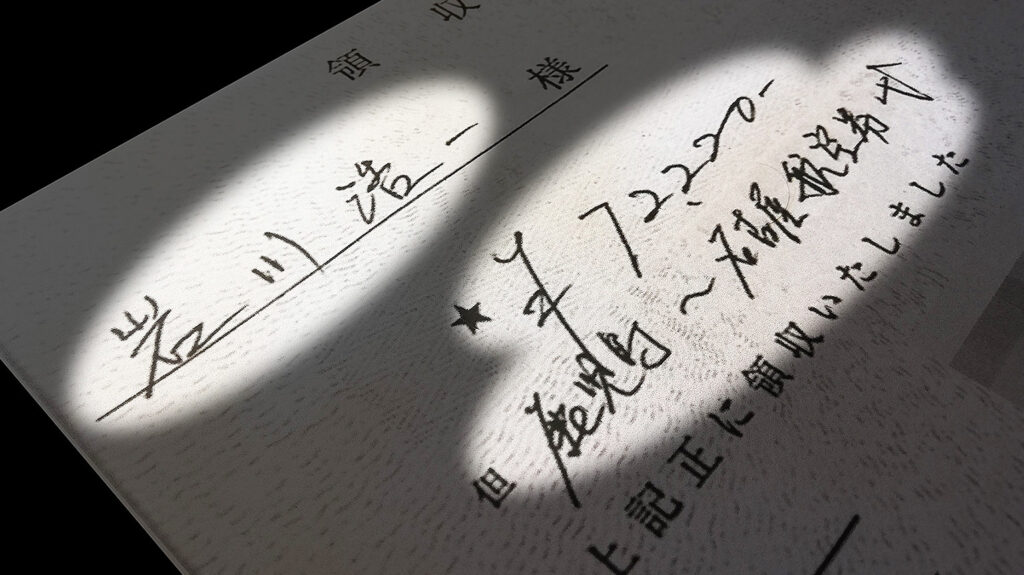 領収
岩川 浩一 様
★ ¥72,220-
但 鹿児島～名瀬航空券代
上記正に領収いたしました